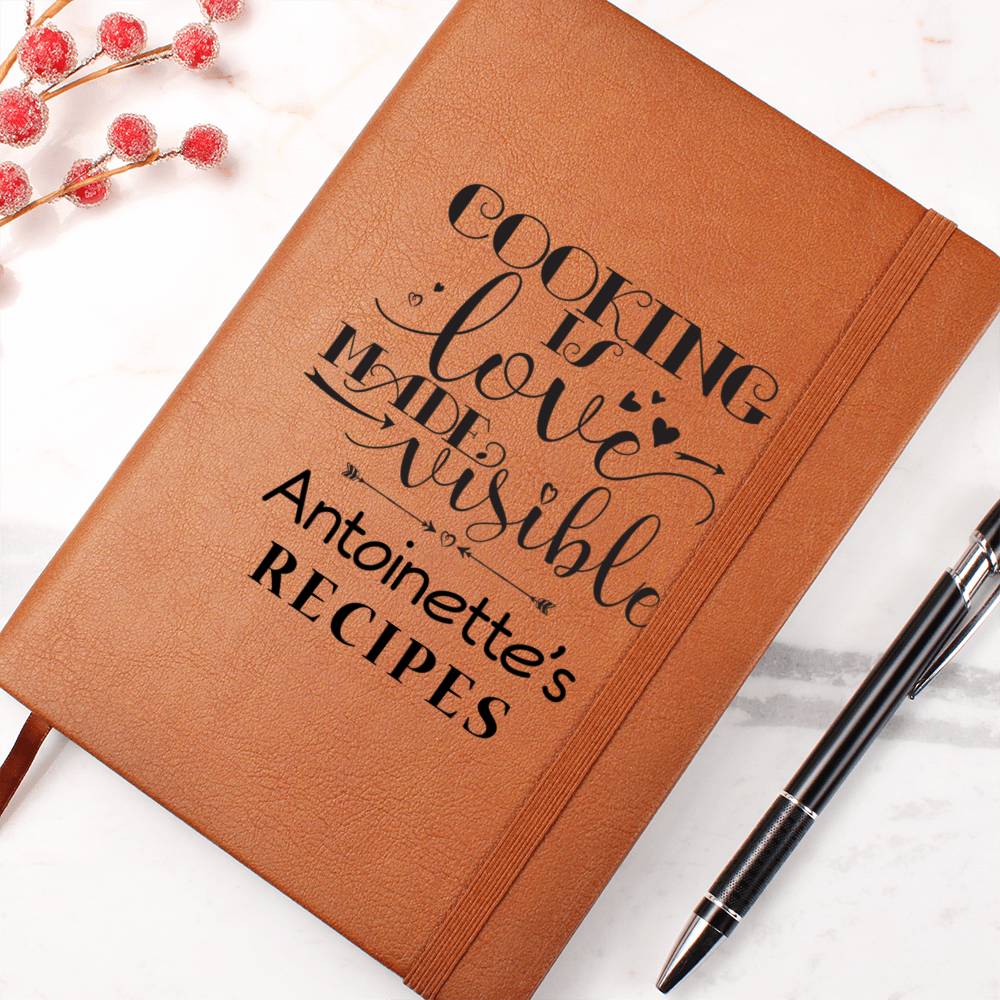 COOKING
IS
love
MADE
visible
Antoinette's
RECIPES